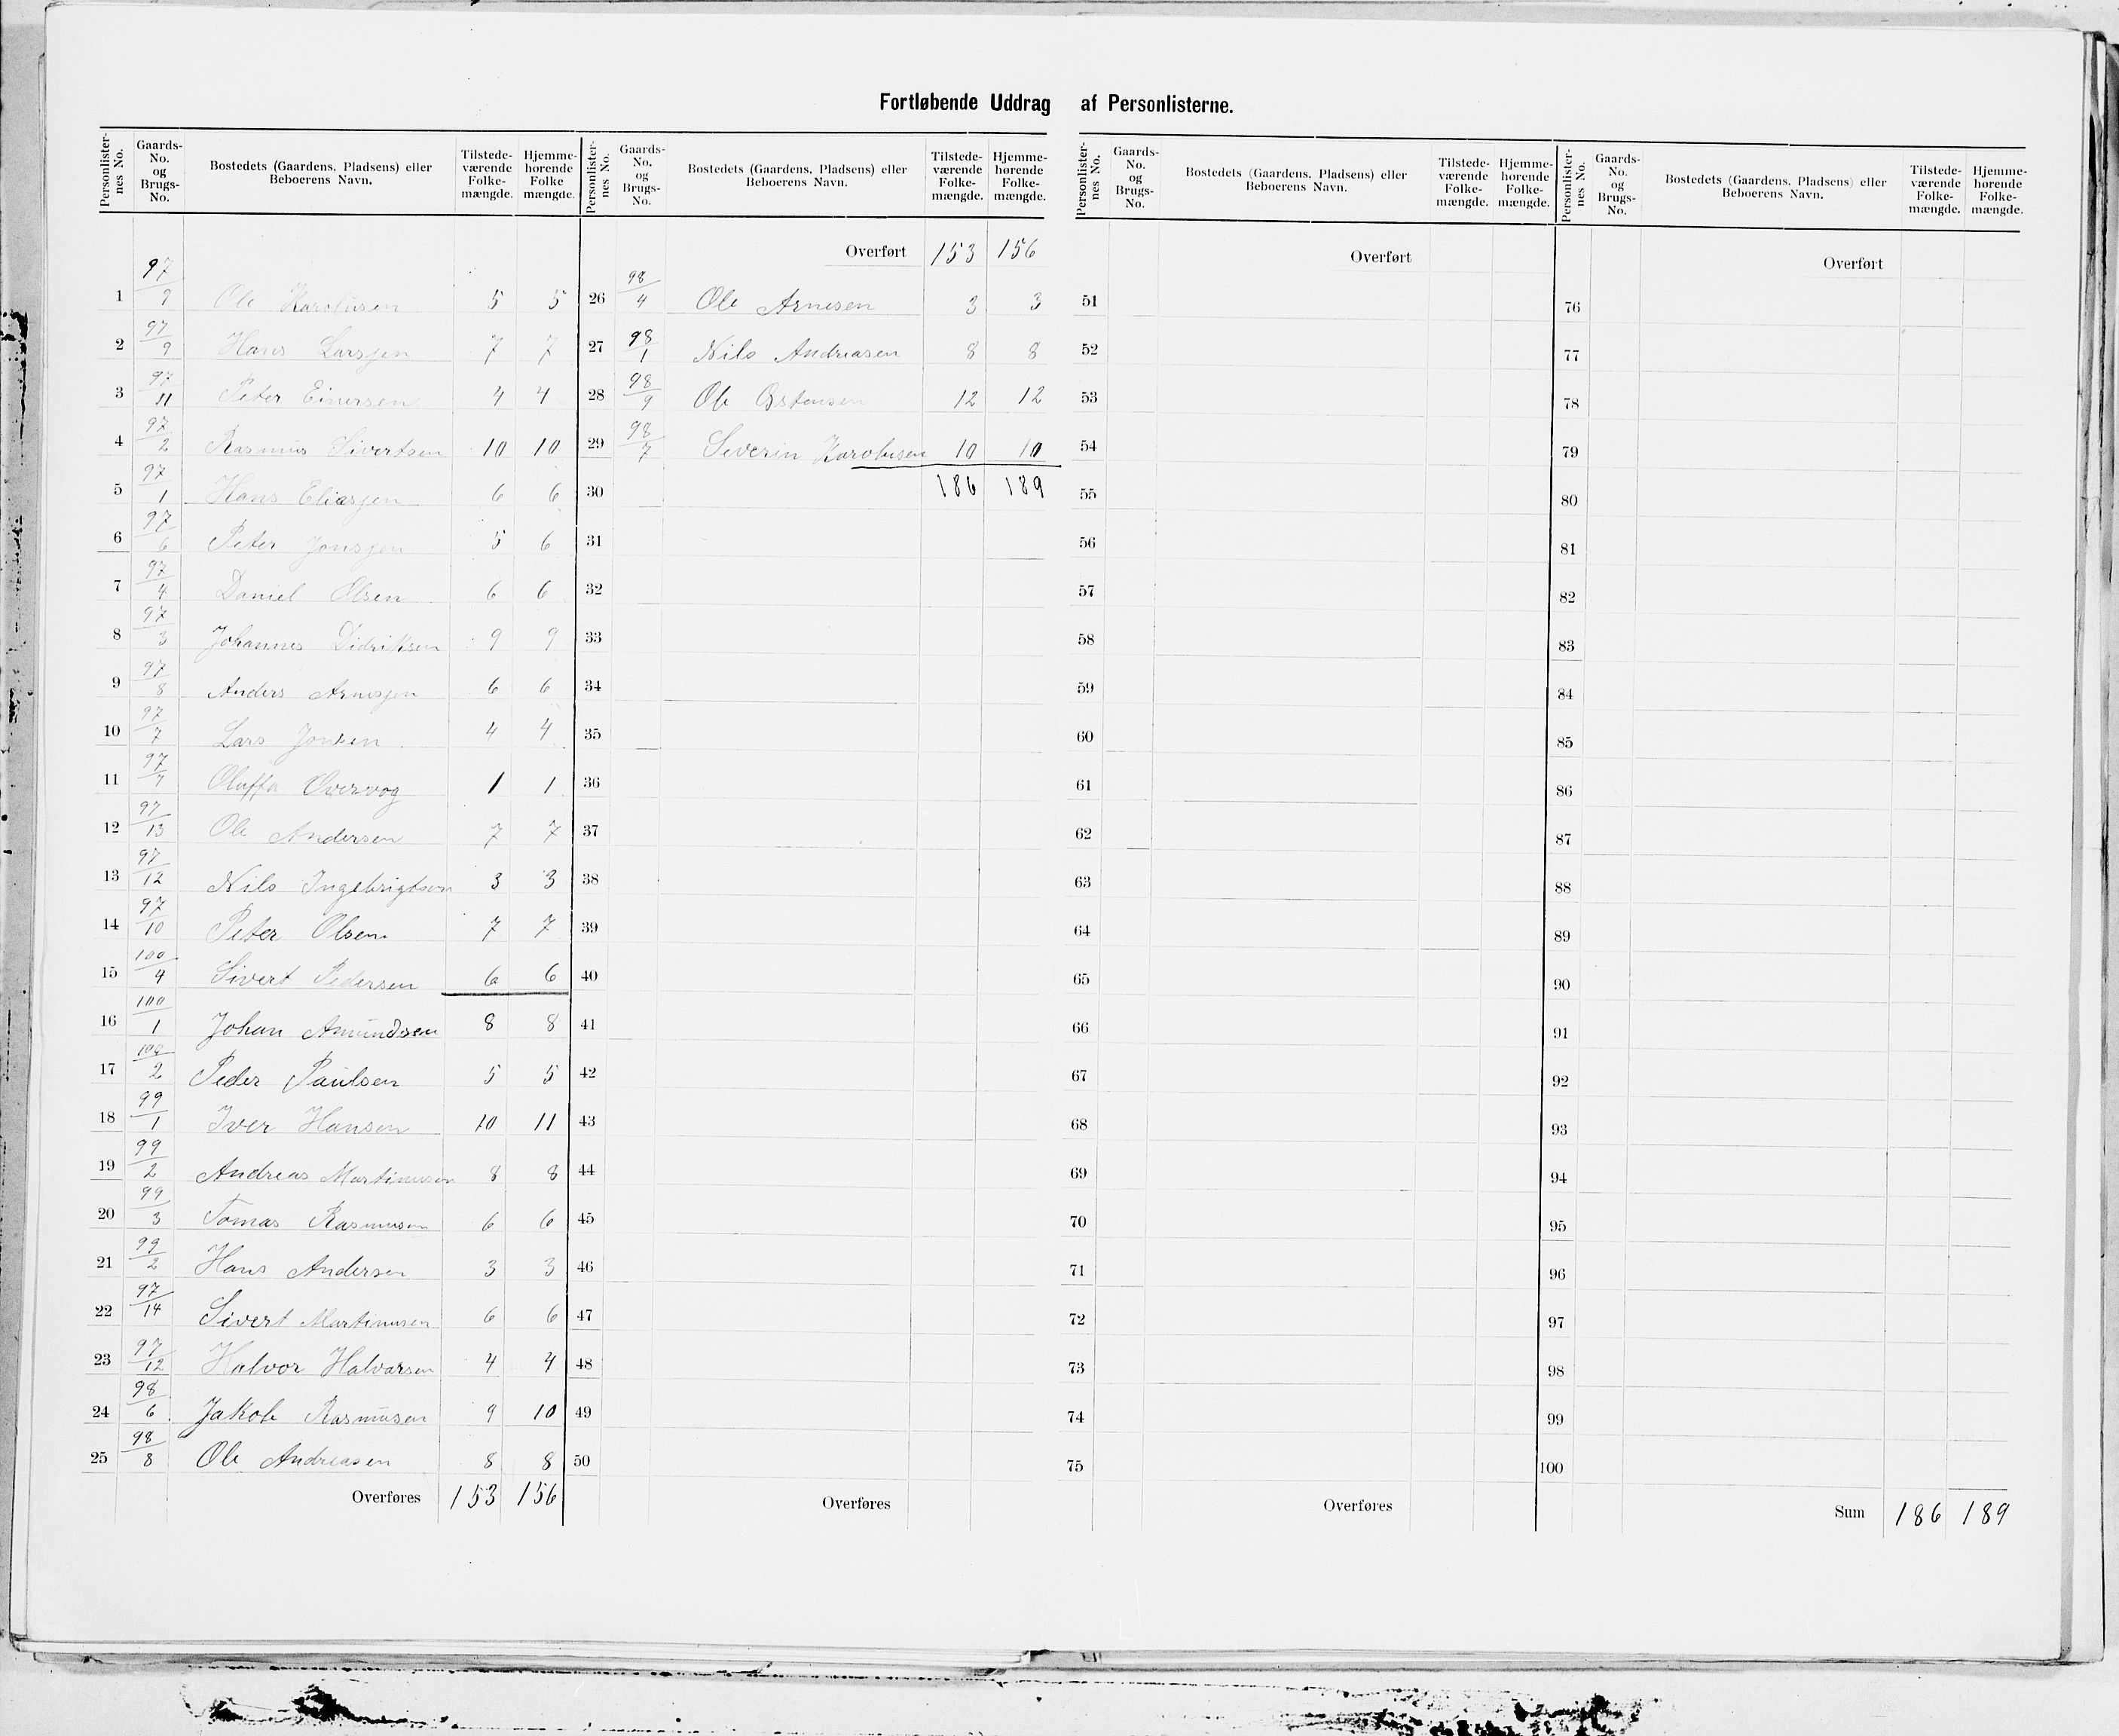 Fortløbende Uddrag af Personlisterne.
Personlisternes No. | Gaards-No. og Brugs-No. | Bostedets (Gaardens, Pladsens) eller Beboerens Navn. | Tilstedeværende Folkemængde. | Hjemmehørende Folkemængde.
1 | 97/9 | Ole Karolusen | 5 | 5
2 | 97/9 | Hans Larsjen | 7 | 7
3 | 97/11 | Peter Einersen | 4 | 4
4 | 97/2 | Rasmus Sivertsen | 10 | 10
5 | 97/1 | Hans Eliasjen | 6 | 6
6 | 97/6 | Peter Jonsjen | 5 | 6
7 | 97/4 | Daniel Olsen | 6 | 6
8 | 97/3 | Johannes Didriksen | 9 | 9
9 | 97/8 | Anders Arnesjen | 6 | 6
10 | 97/7 | Lars Jonsen | 4 | 4
11 | 97/7 | Oluffa Overvog | 1 | 1
12 | 97/13 | Ole Andersen | 7 | 7
13 | 97/12 | Nils Ingebrigtsen | 3 | 3
14 | 97/10 | Peter Olsen | 7 | 7
15 | 100/4 | Sivert Pedersen | 6 | 6
16 | 100/1 | Johan Amundsen | 8 | 8
17 | 100/2 | Peder Paulsen | 5 | 5
18 | 99/1 | Iver Hansen | 10 | 11
19 | 99/2 | Andreas Martinusen | 8 | 8
20 | 99/3 | Tomas Rasmusen | 6 | 6
21 | 99/2 | Hans Andersen | 3 | 3
22 | 97/14 | Sivert Martinusen | 6 | 6
23 | 97/12 | Halvor Halvorsen | 4 | 4
24 | 98/6 | Jakob Rasmusen | 9 | 10
25 | 98/8 | Ole Andreasen | 8 | 8
Overføres | 153 | 156
Personlisternes No. | Gaards-No. og Brugs-No. | Bostedets (Gaardens, Pladsens) eller Beboerens Navn. | Tilstedeværende Folkemængde. | Hjemmehørende Folkemængde.
Overført | 153 | 156
26 | 98/4 | Ole Arnesen | 3 | 3
27 | 98/1 | Nils Andreasen | 8 | 8
28 | 98/9 | Ole Østensen | 12 | 12
29 | 98/7 | Severin Karolusen | 10 | 10
30 | 186 | 189
31
32
33
34
35
36
37
38
39
40
41
42
43
44
45
46
47
48
49
50
Overføres
Personlisternes No. | Gaards-No. og Brugs-No. | Bostedets (Gaardens, Pladsens) eller Beboerens Navn. | Tilstedeværende Folkemængde. | Hjemmehørende Folkemængde.
Overført
51
52
53
54
55
56
57
58
59
60
61
62
63
64
65
66
67
68
69
70
71
72
73
74
75
Overføres
Personlisternes No. | Gaards-No. og Brugs-No. | Bostedets (Gaardens, Pladsens) eller Beboerens Navn. | Tilstedeværende Folkemængde. | Hjemmehørende Folkemængde.
Overført
76
77
78
79
80
81
82
83
84
85
86
87
88
89
90
91
92
93
94
95
96
97
98
99
100
Sum | 186 | 189